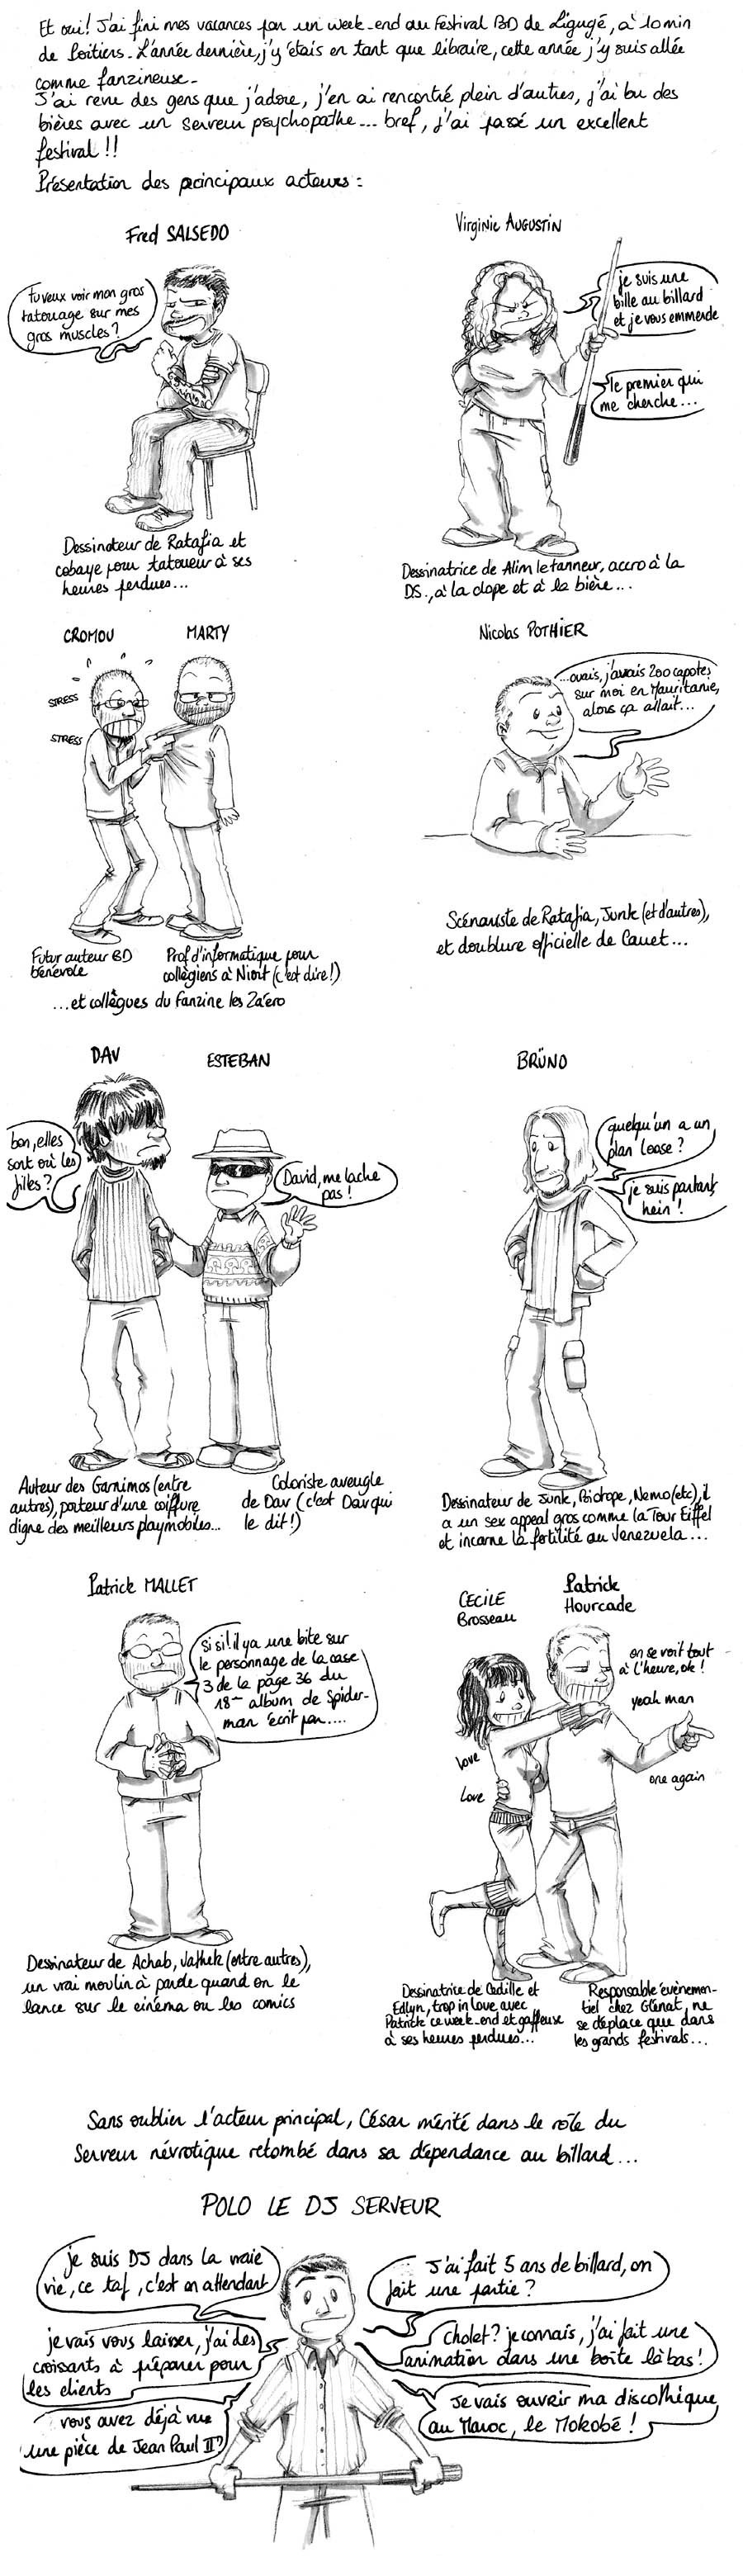 Et oui! J'ai fini mes vacances par un week-end au Festival BD de Ligugé, à 10 min
de Poitiers. L'année dernière, j'y étais en tant que libraire, cette année j'y suis allée
comme fanzineuse.
J'ai revu des gens que j'adore, j'en ai rencontré plein d'autres, j'ai bu des
bières avec un serveur psychopathe... bref, j'ai passé un excellent
festival!!
Présentation des principaux acteurs:
Fred SALSEDO
tu veux voir mon gros
tatouage sur mes
gros muscles?
Dessinateur de Ratafia et
cobaye pour tatoueur à ses
heures perdues...
Virginie AUGUSTIN
je suis une
bille au billard
et je vous emmerde
le premier qui
me cherche...
Dessinatrice de Alim le tanneur, accro à la
DS, à la clope et à la bière...
CROMOU
MARTY
STRESS
STRESS
Futur auteur BD
bénévole
Prof d'informatique pour
collégiens à Niort (c'est dire!)
...et collègues du fanzine les Zaéro
Nicolas POTHIER
...ouais, j'avais 200 capotes
sur moi en Mauritanie,
alors ça allait...
Scénariste de Ratafia, Junk (et d'autres),
et doublure officielle de Cauet...
DAV
ESTEBAN
bon, elles
sont où les
filles?
David, me lache
pas!
Auteur des Garnimos (entre
autres), porteur d'une coiffure
digne des meilleurs playmobiles...
Coloriste aveugle
de Dav (c'est Dav qui
le dit!)
BRÜNO
quelqu'un a un
plan lose?
je suis partant,
hein!
Dessinateur de Junk, Biotope, Nemo (etc), il
a un sex appeal gros comme la Tour Eiffel
et incarne la fertilité au Venezuela...
Patrick MALLET
Si si! il y a une bite sur
le personnage de la case
3 de la page 36 du
18ème album de Spider-
man écrit par....
Dessinateur de Achab, Vathek (entre autres),
un vrai moulin à parole quand on le
lance sur le cinéma ou les comics
CECILE
Brosseau
Patrick
Hourcade
on se voit tout
à l'heure, ok!
yeah man
one again
love
love
Dessinatrice de Cédille et
Edlyn, trop in love avec
Patrick ce week-end et gaffeuse
à ses heures perdues...
Responsable évènemen-
tiel chez Glénat, ne
se déplace que dans
les grands festivals...
Sans oublier l'acteur principal, César mérité dans le rôle du
Serveur névrotique retombé dans sa dépendance au billard...
POLO LE DJ SERVEUR
je suis DJ dans la vraie
vie, ce taf, c'est en attendant
J'ai fait 5 ans de billard, on
fait une partie?
je vais vous laisser, j'ai des
croissants à préparer pour
les clients
Cholet? je connais, j'ai fait une
animation dans une boîte là bas!
vous avez déjà vu
une pièce de Jean Paul II?
Je vais ouvrir ma discothèque
au Maroc, le Mokobé!